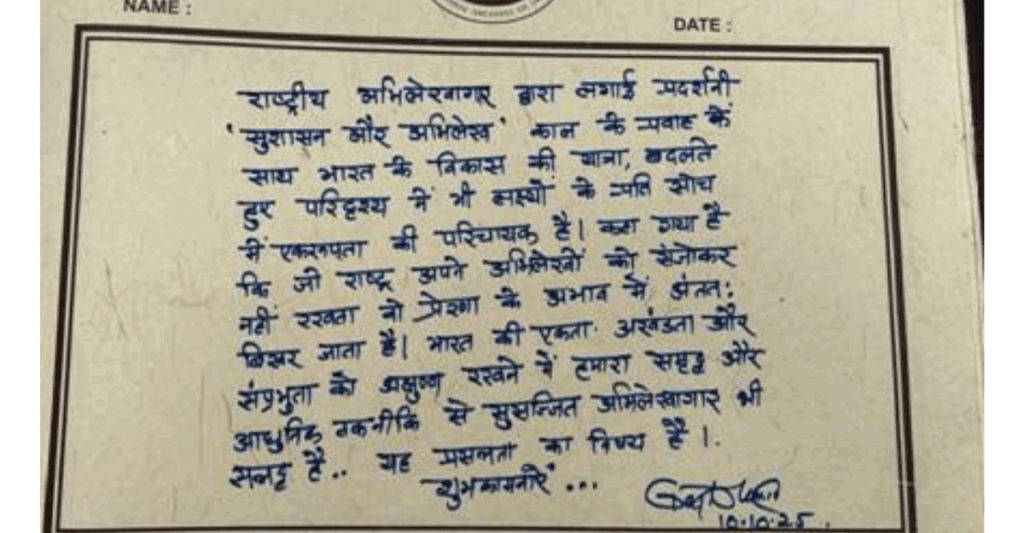 NAME :
DATE :
राष्ट्रीय अभिलेखागार द्वारा लगाई प्रदर्शनी
'सुशासन और अभिलेख' काल के प्रवाह के
साथ भारत के विकास की यात्रा, बदलते
हुए परिदृश्य में भी लक्ष्यों के प्रति सोच
में एकरूपता की परिचायक है। कहा गया है
कि जो राष्ट्र अपने अभिलेखों को संजोकर
नहीं रखता वो प्रेरणा के अभाव में अंततः
बिखर जाता है। भारत की एकता अखंडता और
संप्रभुता को अक्षुण्ण रखने में हमारा समृद्ध और
आधुनिक तकनीकि से सुसज्जित अभिलेखागार भी
सन्नद्ध है.. यह प्रसन्नता का विषय है।
शुभकामनाएँ ...
10.10.25